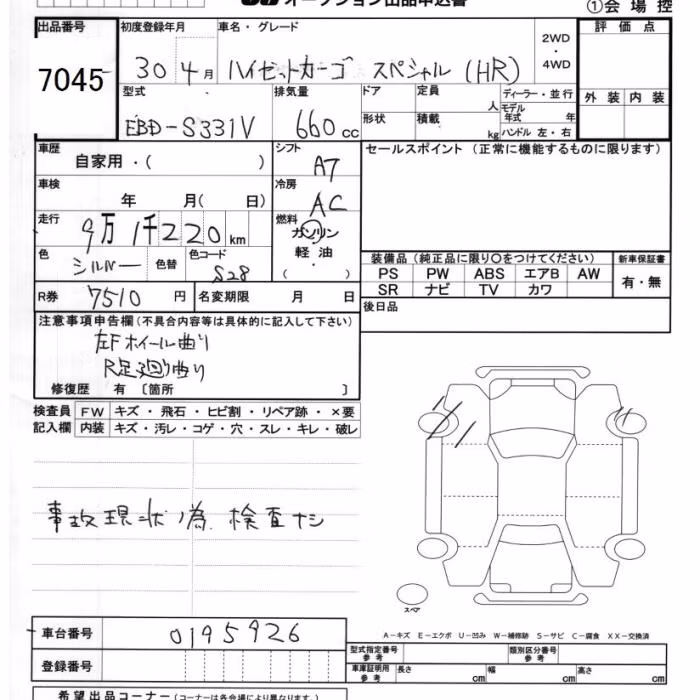 オークション出品申込書
①会場控
出品番号 7045
初度登録年月 30 4月
車名・グレード ハイゼットカーゴ スペシャル (HR)
2WD
・
4WD
評価点
外装 内装
型式 EBD-S331V
排気量 660cc
ドア
形状
定員 人
積載 kg
ディーラー・並行
モデル年式 年
ハンドル 左・右
車歴 自家用・( )
シフト A7
セールスポイント (正常に機能するものに限ります)
車検 年 月( 日)
冷房 AC
走行 9万1千220km
燃料 ガソリン
軽油
( ・ )
色 シルバー 色替 色コード S28
装備品 (純正品に限り〇をつけてください)
新車保証書
PS PW ABS エアB AW
SR ナビ TV カワ
有・無
R券 7510円 名変期限 月 日
後日品
注意事項申告欄(不具合内容等は具体的に記入して下さい)
左Fホイール曲り
R足廻り曲り
修復歴 有 〔箇所 〕
検査員 FW キズ・飛石・ヒビ割・リペア跡・×要
記入欄 内装 キズ・汚レ・コゲ・穴・スレ・キレ・破レ
事故現状ノ為、検査ナシ
スペア
A-キズ E-エクボ U-凹み W-補修跡 S-サビ C-腐食 XX-交換済
車台番号 0195926
型式指定番号 参考
類別区分番号 参考
登録番号
車庫証明用 参考 長さ cm 幅 cm 高さ cm
希望出品コーナー (コーナーは各会場により異なります。)